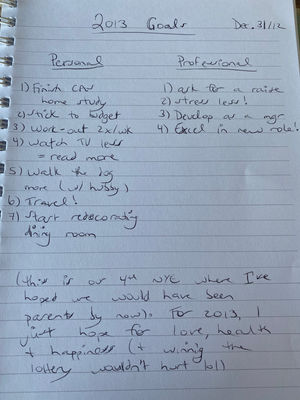 2013 Goals Dec. 31/12
Personal
1) Finish CPA
home study
2) stick to budget
3) work-out 2x/wk
4) watch TV less
= read more
5) walk the dog
more (w/ hubby)
6) Travel!
7) Start redecorating
dining room
Professional
1) ask for a raise
2) stress less!
3) Develop as a mgr
4) Excel in new role!
(this is our 4th NYE where I've
hoped we would have been
parents by now). For 2013, I
just hope for love, health
+ happiness (+ winning the
lottery wouldn't hurt lol)